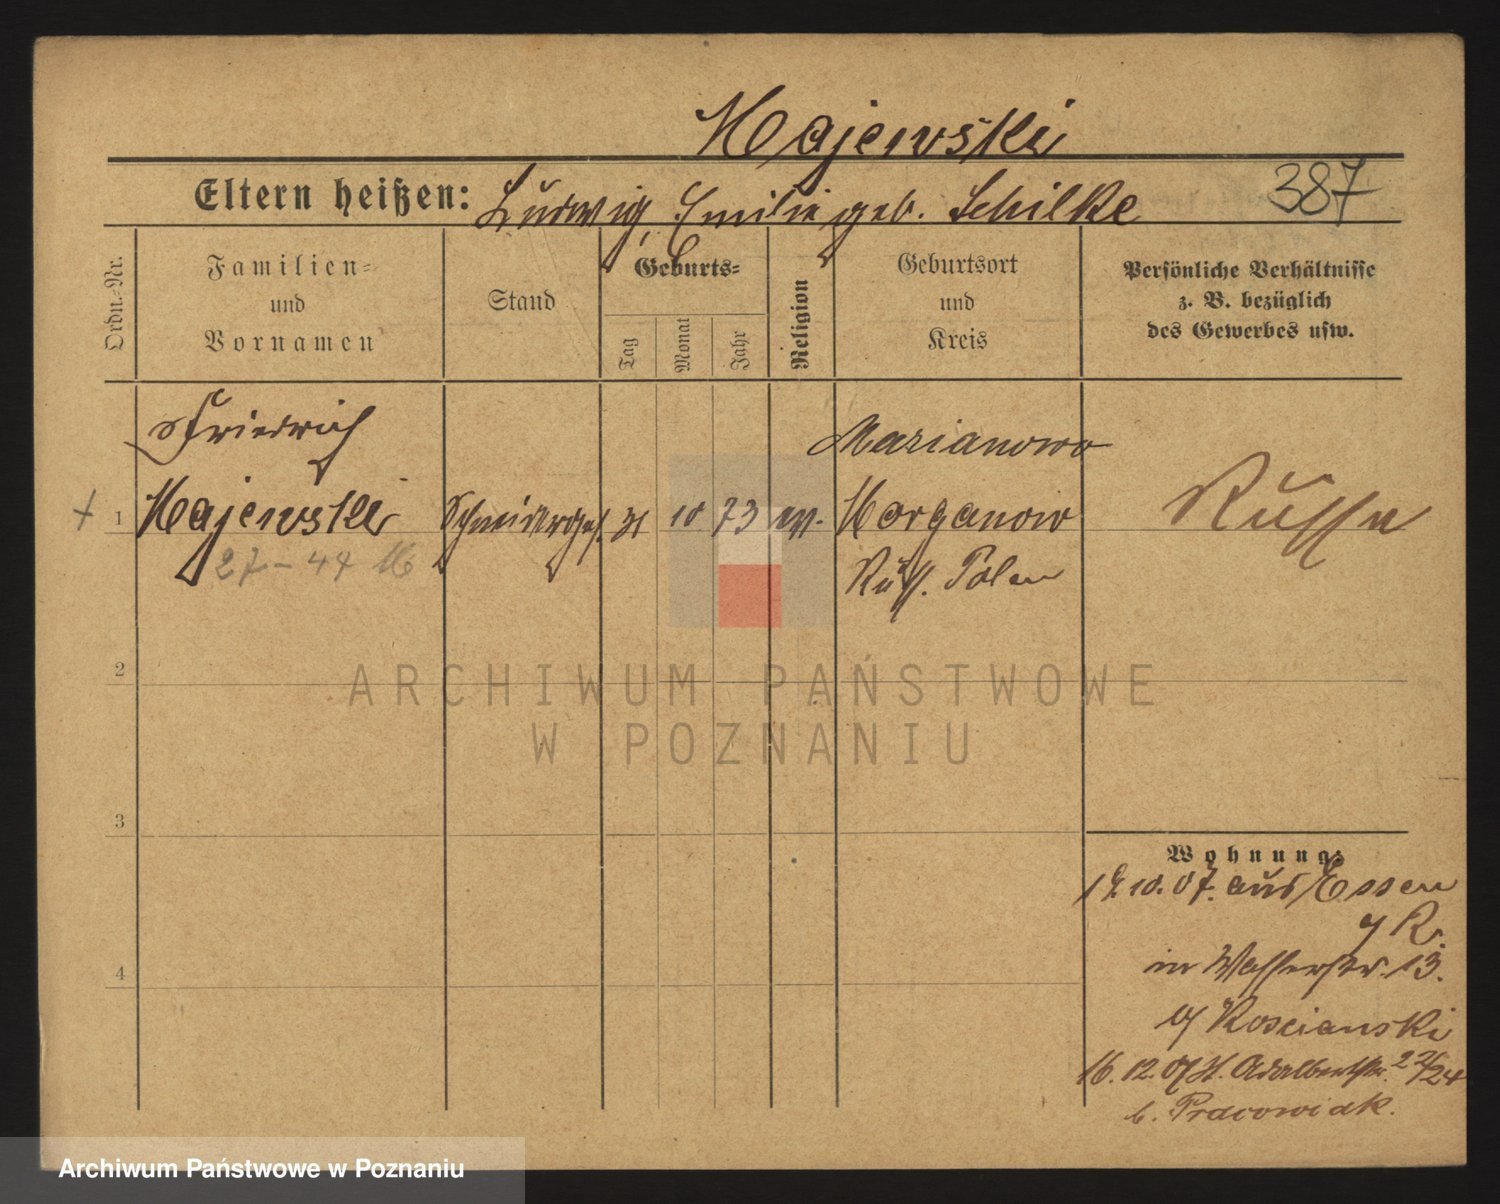 Majewski
Eltern heißen: Ludwig, Emilie geb. Schilke
387
Ordn.-Nr.
Familien-
und
Vornamen
Stand
Geburts-
Tag
Monat
Jahr
Religion
Geburtsort
und
Kreis
Persönliche Verhältnisse
z. B. bezüglich
des Gewerbes usw.
Friedrich
Marianowo
+ 1 Majewski Schneiderges. 31 10 73 ev. Morganow Russe
27-44
Russ. Polen
2
3
4
Wohnung:
19.10.07. aus Essen
R.
in Wasserstr. 13.
Koscianski
16.12.07 St. Adalbertstr. 22/24
b. Pracowiak.
ARCHIWUM PAŃSTWOWE
W POZNANIU
Archiwum Państwowe w Poznaniu